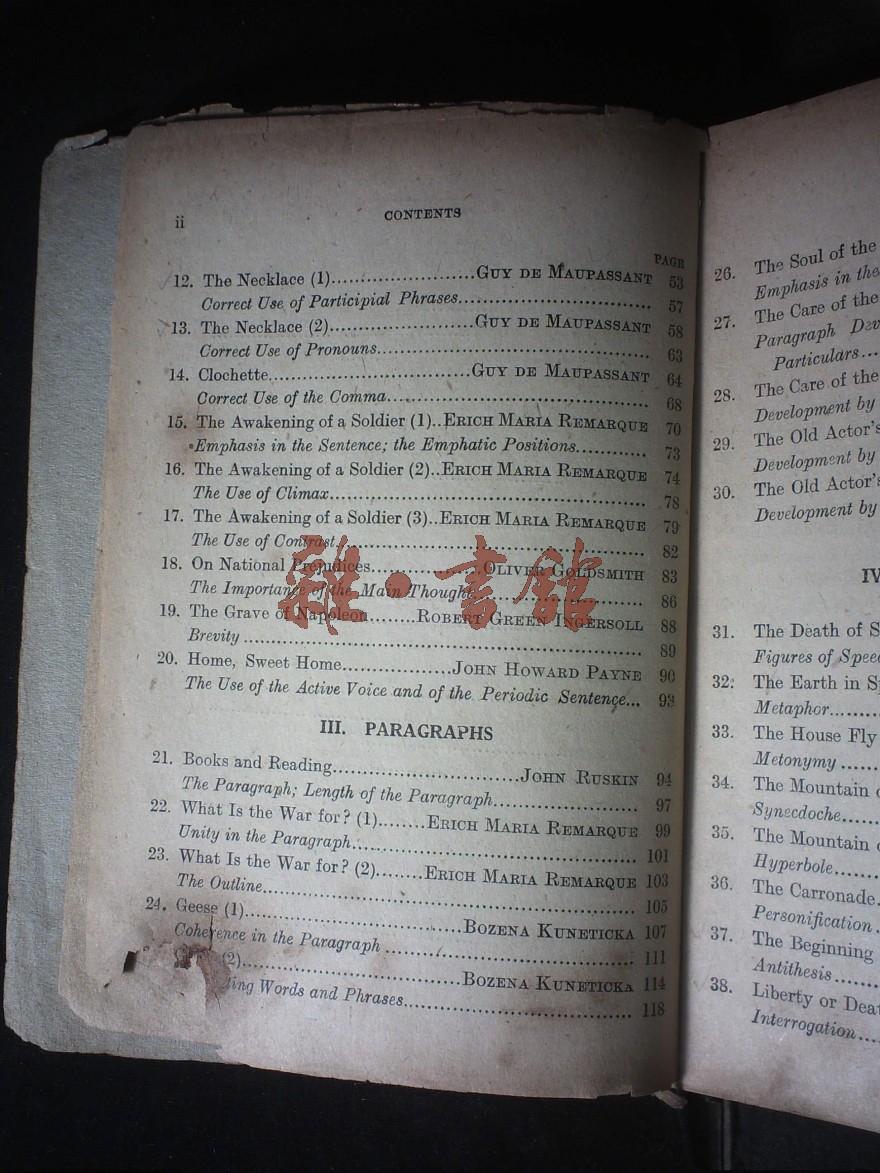 ii
CONTENTS
PAGE
12. The Necklace (1)........................GUY DE MAUPASSANT 53
Correct Use of Participial Phrases................................ 57
13. The Necklace (2)........................GUY DE MAUPASSANT 58
Correct Use of Pronouns............................................. 63
14. Clochette..................................GUY DE MAUPASSANT 64
Correct Use of the Comma........................................... 68
15. The Awakening of a Soldier (1)..ERICH MARIA REMARQUE 70
Emphasis in the Sentence; the Emphatic Positions........... 73
16. The Awakening of a Soldier (2)..ERICH MARIA REMARQUE 74
The Use of Climax.................................................... 78
17. The Awakening of a Soldier (3)..ERICH MARIA REMARQUE 79
The Use of Contrast.................................................. 82
18. On National Prejudices...................OLIVER GOLDSMITH 83
The Importance of the Main Thought............................ 86
19. The Grave of Napoleon........ROBERT GREEN INGERSOLL 88
Brevity ................................................................ 89
20. Home, Sweet Home..................JOHN HOWARD PAYNE 90
The Use of the Active Voice and of the Periodic Sentence... 93
III. PARAGRAPHS
21. Books and Reading..............................JOHN RUSKIN 94
The Paragraph; Length of the Paragraph........................ 97
22. What Is the War for? (1)........ERICH MARIA REMARQUE 99
Unity in the Paragraph............................................... 101
23. What Is the War for? (2)........ERICH MARIA REMARQUE 103
The Outline............................................................ 105
24. Geese (1)....................................BOZENA KUNETICKA 107
Coherence in the Paragraph ....................................... 111
(2)....................................BOZENA KUNETICKA 114
Words and Phrases..................................... 118
雜·書館
26. The Soul of the
Emphasis in the
27. The Care of the
Paragraph
Particulars...
28. The Care of the
Development by
29. The Old Actor's
Development by
30. The Old Actor's
Development by
IV
31. The Death of S
Figures of Spee
32. The Earth in
Metaphor........
33. The House Fly
Metonymy ......
34. The Mountain
Synecdoche.....
35. The Mountain
Hyperbole......
36. The Carronade.
Personification.
37. The Beginning
Antithesis.......
38. Liberty or Deat
Interrogation....